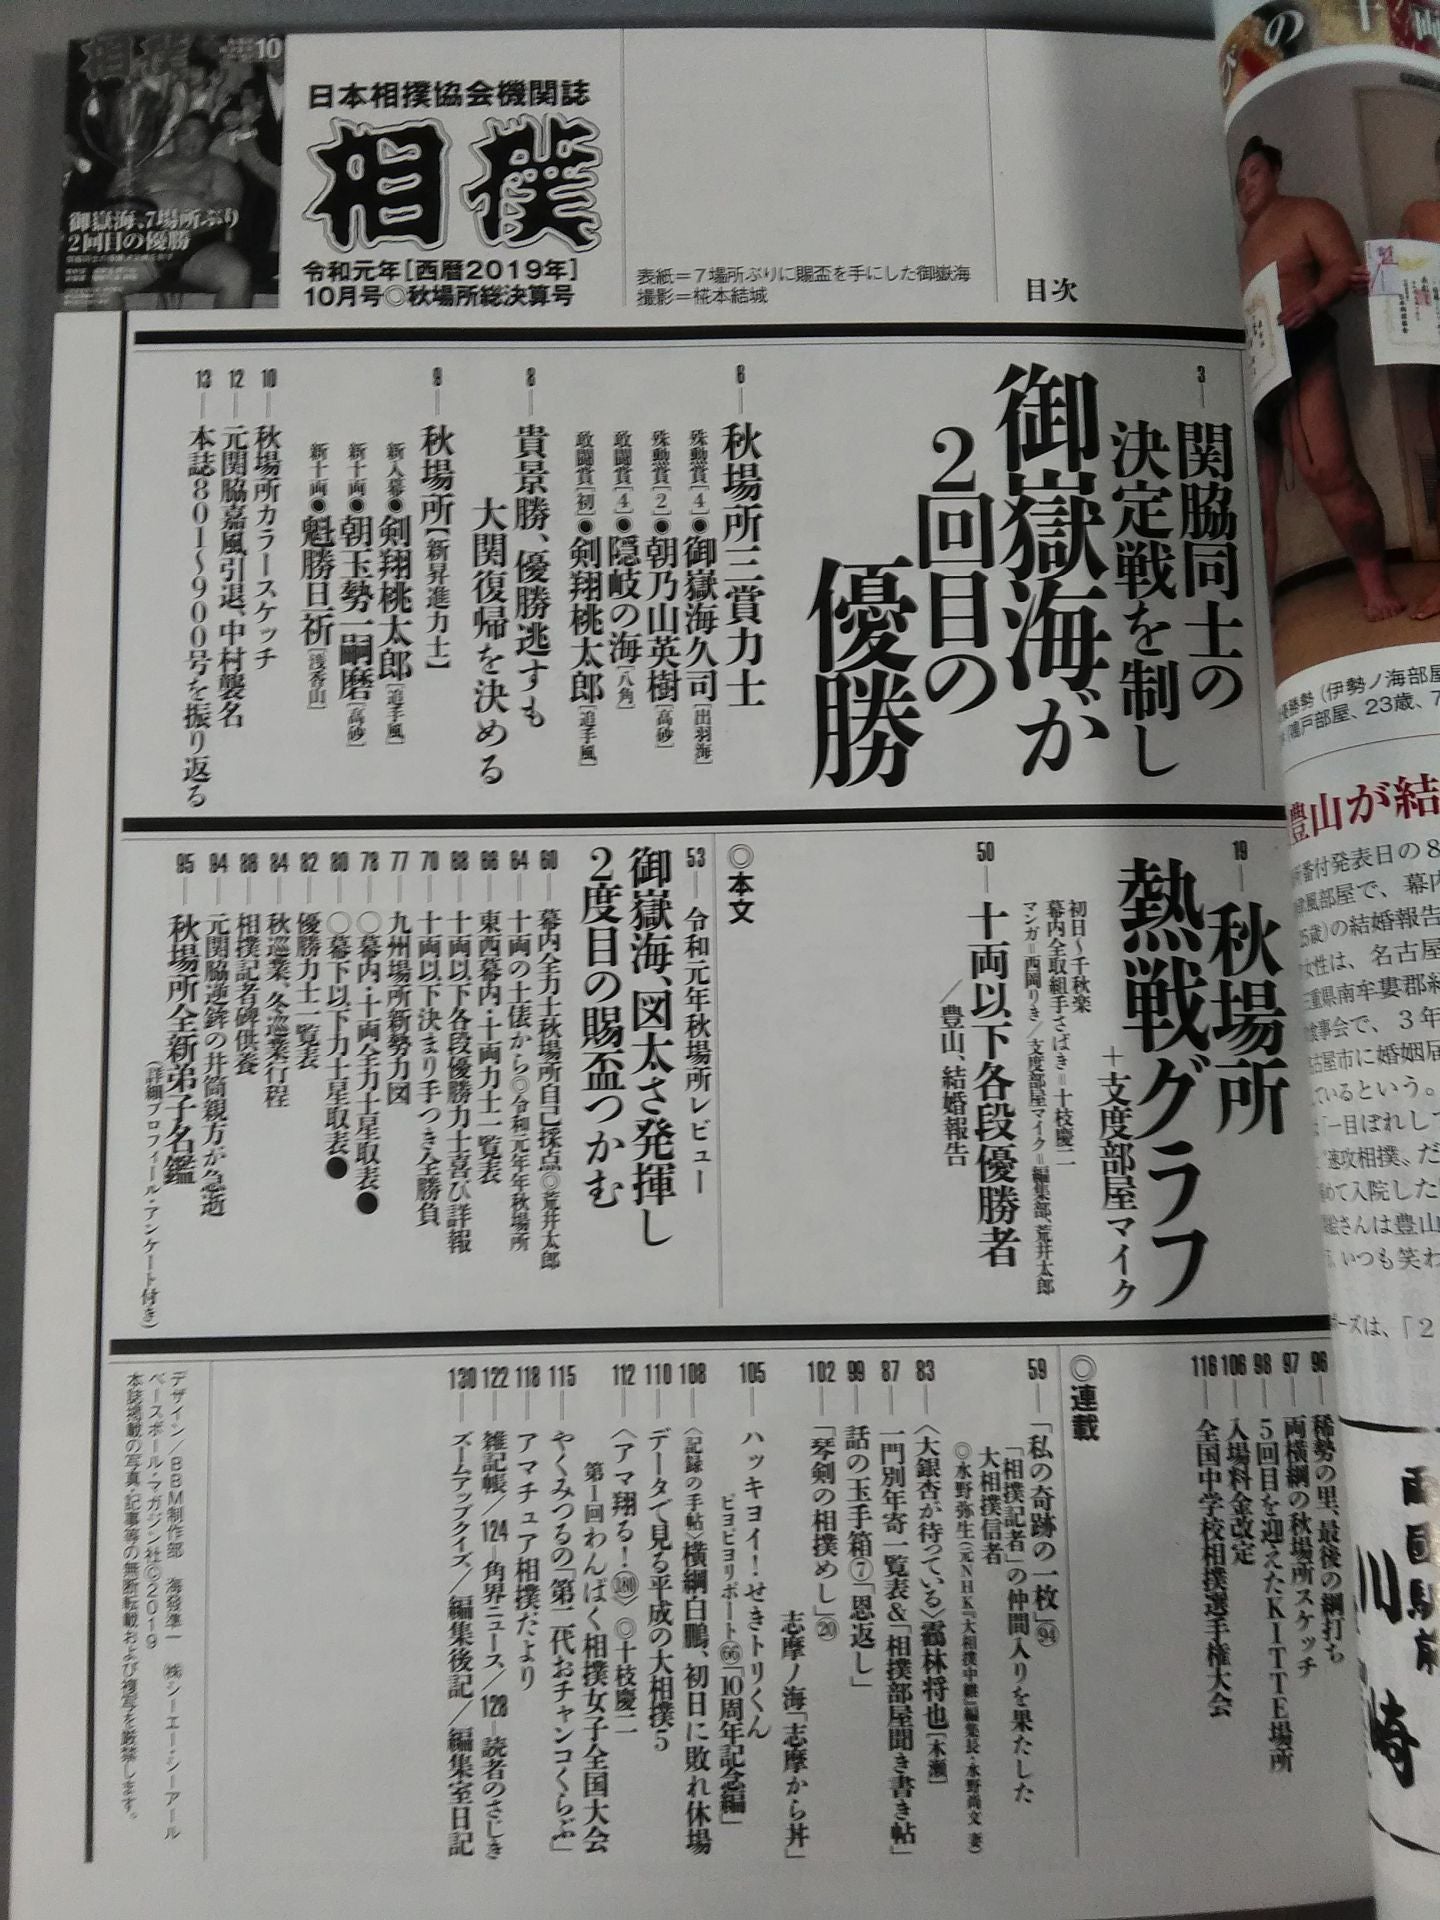 相撲
10
御嶽海、7場所ぶり
2回目の優勝
日本相撲協会機関誌
相撲
令和元年［西暦2019年］
10月号◎秋場所総決算号
表紙＝7場所ぶりに賜盃を手にした御嶽海
撮影＝椛本結城
目次
3―関脇同士の
決定戦を制し
御嶽海が
2回目の
優勝
6―秋場所三賞力士
殊勲賞［4］●御嶽海久司［出羽海］
殊勲賞［2］●朝乃山英樹［高砂］
敢闘賞［4］●隠岐の海［八角］
敢闘賞［初］●剣翔桃太郎［追手風］
8―貴景勝、優勝逃すも
大関復帰を決める
9―秋場所【新昇進力士】
新入幕●剣翔桃太郎［追手風］
新十両●朝玉勢一嗣磨［高砂］
新十両●魁勝旦祈［浅香山］
10―秋場所カラースケッチ
12―元関脇嘉風引退、中村襲名
13―本誌801～900号を振り返る
19―秋場所
熱戦グラフ
＋支度部屋マイク
初日～千秋楽
幕内全取組手さばき＝十枝慶二
マンガ＝西岡りき／支度部屋マイク＝編集部、荒井太郎
50―十両以下各段優勝者
／豊山、結婚報告
◎本文
53―令和元年秋場所レビュー
御嶽海、図太さ発揮し
2度目の賜盃つかむ
60―幕内全力士秋場所自己採点◎荒井太郎
64―十両の土俵から◎令和元年年秋場所
66―東西幕内・十両力士一覧表
68―十両以下各段優勝力士喜び詳報
70―十両以下決まり手つき全勝負
77―九州場所新勢力図
78―○幕内・十両全力士星取表●
80―○幕下以下力士星取表●
82―優勝力士一覧表
84―秋巡業、冬巡業行程
86―相撲記者碑供養
94―元関脇逆鉾の井筒親方が急逝
95―秋場所全新弟子名鑑
（詳細プロフィール・アンケート付き）
96―稀勢の里、最後の綱打ち
97―両横綱の秋場所スケッチ
98―5回目を迎えたKITTE場所
106―入場料金改定
116―全国中学校相撲選手権大会
◎連載
59―「私の奇跡の一枚」94
「相撲記者」の仲間入りを果たした
大相撲信者
◎水野弥生（元NHK『大相撲中継』編集長・水野尚文 妻）
83―〈大銀杏が待っている〉靏林将也［木瀬］
87―一門別年寄一覧表＆「相撲部屋聞き書き帖」
99―話の玉手箱⑦「恩返し」
102―「琴剣の相撲めし」⑳
志摩ノ海「志摩から丼」
105―ハッキヨイ！せきトリくん
ピヨピヨリポート66「10周年記念編」
108―〈記録の手帖〉横綱白鵬、初日に敗れ休場
110―データで見る平成の大相撲5
112―〈アマ翔る！180〉◎十枝慶二
第1回わんぱく相撲女子全国大会
115―やくみつるの「第二代おチャンコくらぶ」
118―アマチュア相撲だより
122―雑記帳／124―角界ニュース／128―読者のさじき
130―ズームアップクイズ／編集後記／編集室日記
デザイン／BBM制作部 海発準一 ㈱シーエー・シーアール
ベースボール・マガジン社©2019
本誌掲載の写真・記事等の無断転載および複写を厳禁します。
勢（伊勢ノ海部屋
鳴戸部屋、23歳、7
豊山が結
番付発表日の8
風部屋で、幕内
の結婚報告
女性は、名古屋
重県南牟婁郡紀
食事会で、3年
古屋市に婚姻届
ているという。
「一目ぼれして
速攻相撲〟だ
めて入院した
さんは豊山
いつも笑わ
ーズは、「2
川崎